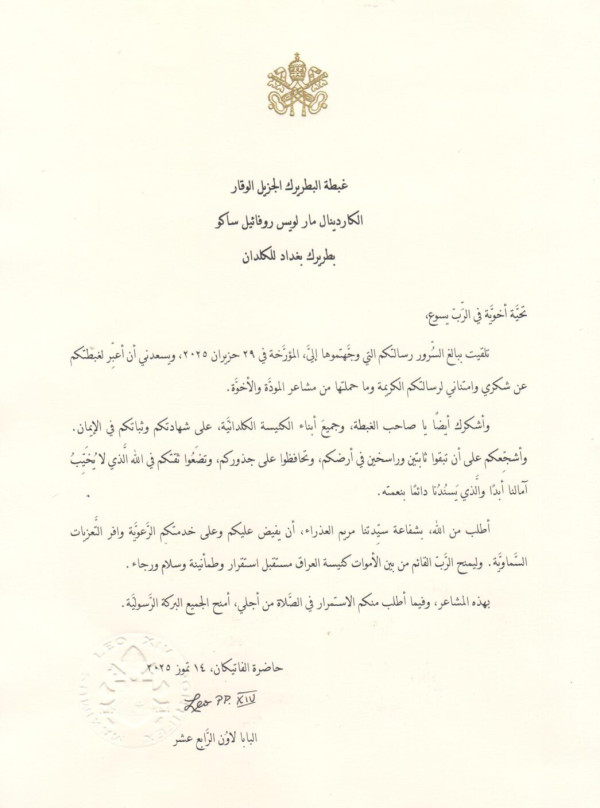 غبطة البطريرك الجزيل الوقار
الكاردينال مار لويس روفائيل ساكو
بطريرك بغداد للكلدان
تحيَّة أخويَّة في الرّبّ يسوع،
تلقيت ببالغ السُّرور رسالتكم التي وجَّهتموها إليَّ، المؤرَّخة في ٢٩ حزيران ٢٠٢٥، ويسعدني أن أعبِّر لغبطَتكم
عن شكري وامتناني لرسالتكم الكريمة وما حملتها من مشاعر المودَّة والأخوَّة.
وأشكرك أيضًا يا صاحب الغبطة، وجميعَ أبناء الكنيسة الكلدانيَّة، على شهادتكم وثباتكم في الإيمان.
وأشجِّعكم على أن تبقوا ثابتين وراسخين في أرضكم، وتحافظوا على جذوركم، وتضَعُوا ثقتَكم في الله الَّذي لا يُخَيِّبُ
آمالنا أبدًا والَّذي يَسنُدُنَا دائمًا بنعمته.
أطلب من الله، بشفاعة سيِّدتنا مريم العذراء، أن يفيض عليكم وعلى خدمتكم الرَّعويَّة وافر التَّعزيات
السَّماويَّة. وليمنح الرَّبّ القائم من بين الأموات كنيسة العراق مستقبل استقرار وطمأنينة وسلام ورجاء.
بهذه المشاعر، وفيما أطلب منكم الاستمرار في الصَّلاة من أجلي، أمنح الجميع البركة الرَّسوليَّة.
حاضرة الفاتيكان، ١٤ تموز ٢٠٢٥
Leo PP. XIV
البابا لاوُن الرَّابع عشر
LEO XIV